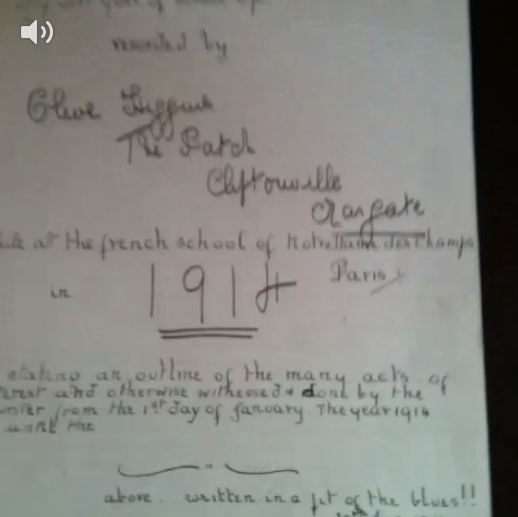 recorded by
Olive Higgins
The Patch
Cliftonville
Margate
at the french school of Notre Dame des Champs
Paris
in 1914
stating an outline of the many acts of
and otherwise witnessed & done by the
from the 1st day of january The year 1914
until the
above. written in a fit of the blues!!